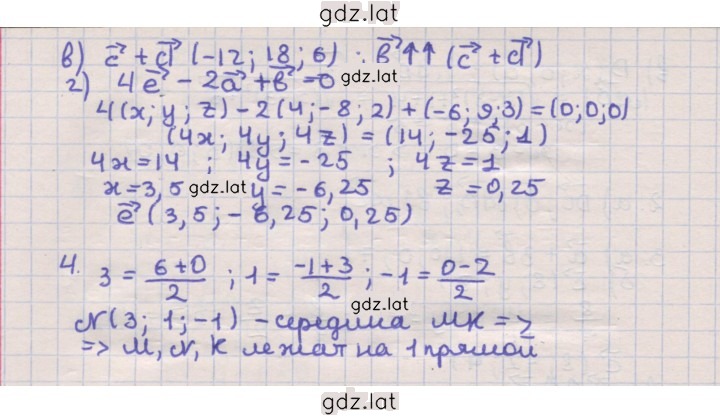 gdz.lat
в) c⃗ + d⃗ (-12; 18; 6) : b⃗ ↑↑ (c⃗ + d⃗)
г) 4e⃗ - 2a⃗ + b⃗ = 0
gdz.lat
4(x; y; z) - 2(4; -8; 2) + (-6; 9; 3) = (0; 0; 0)
(4x; 4y; 4z) = (14; -25; 1)
4x = 14 ; 4y = -25 ; 4z = 1
x = 3,5 gdz.lat y = -6,25 z = 0,25
e⃗ (3,5; -6,25; 0,25)
4. 3 = (6+0)/2 ; 1 = (-1+3)/2 ; -1 = (0-2)/2
gdz.lat
N(3; 1; -1) - середина MK =>
=> M, N, K лежат на 1 прямой
gdz.lat